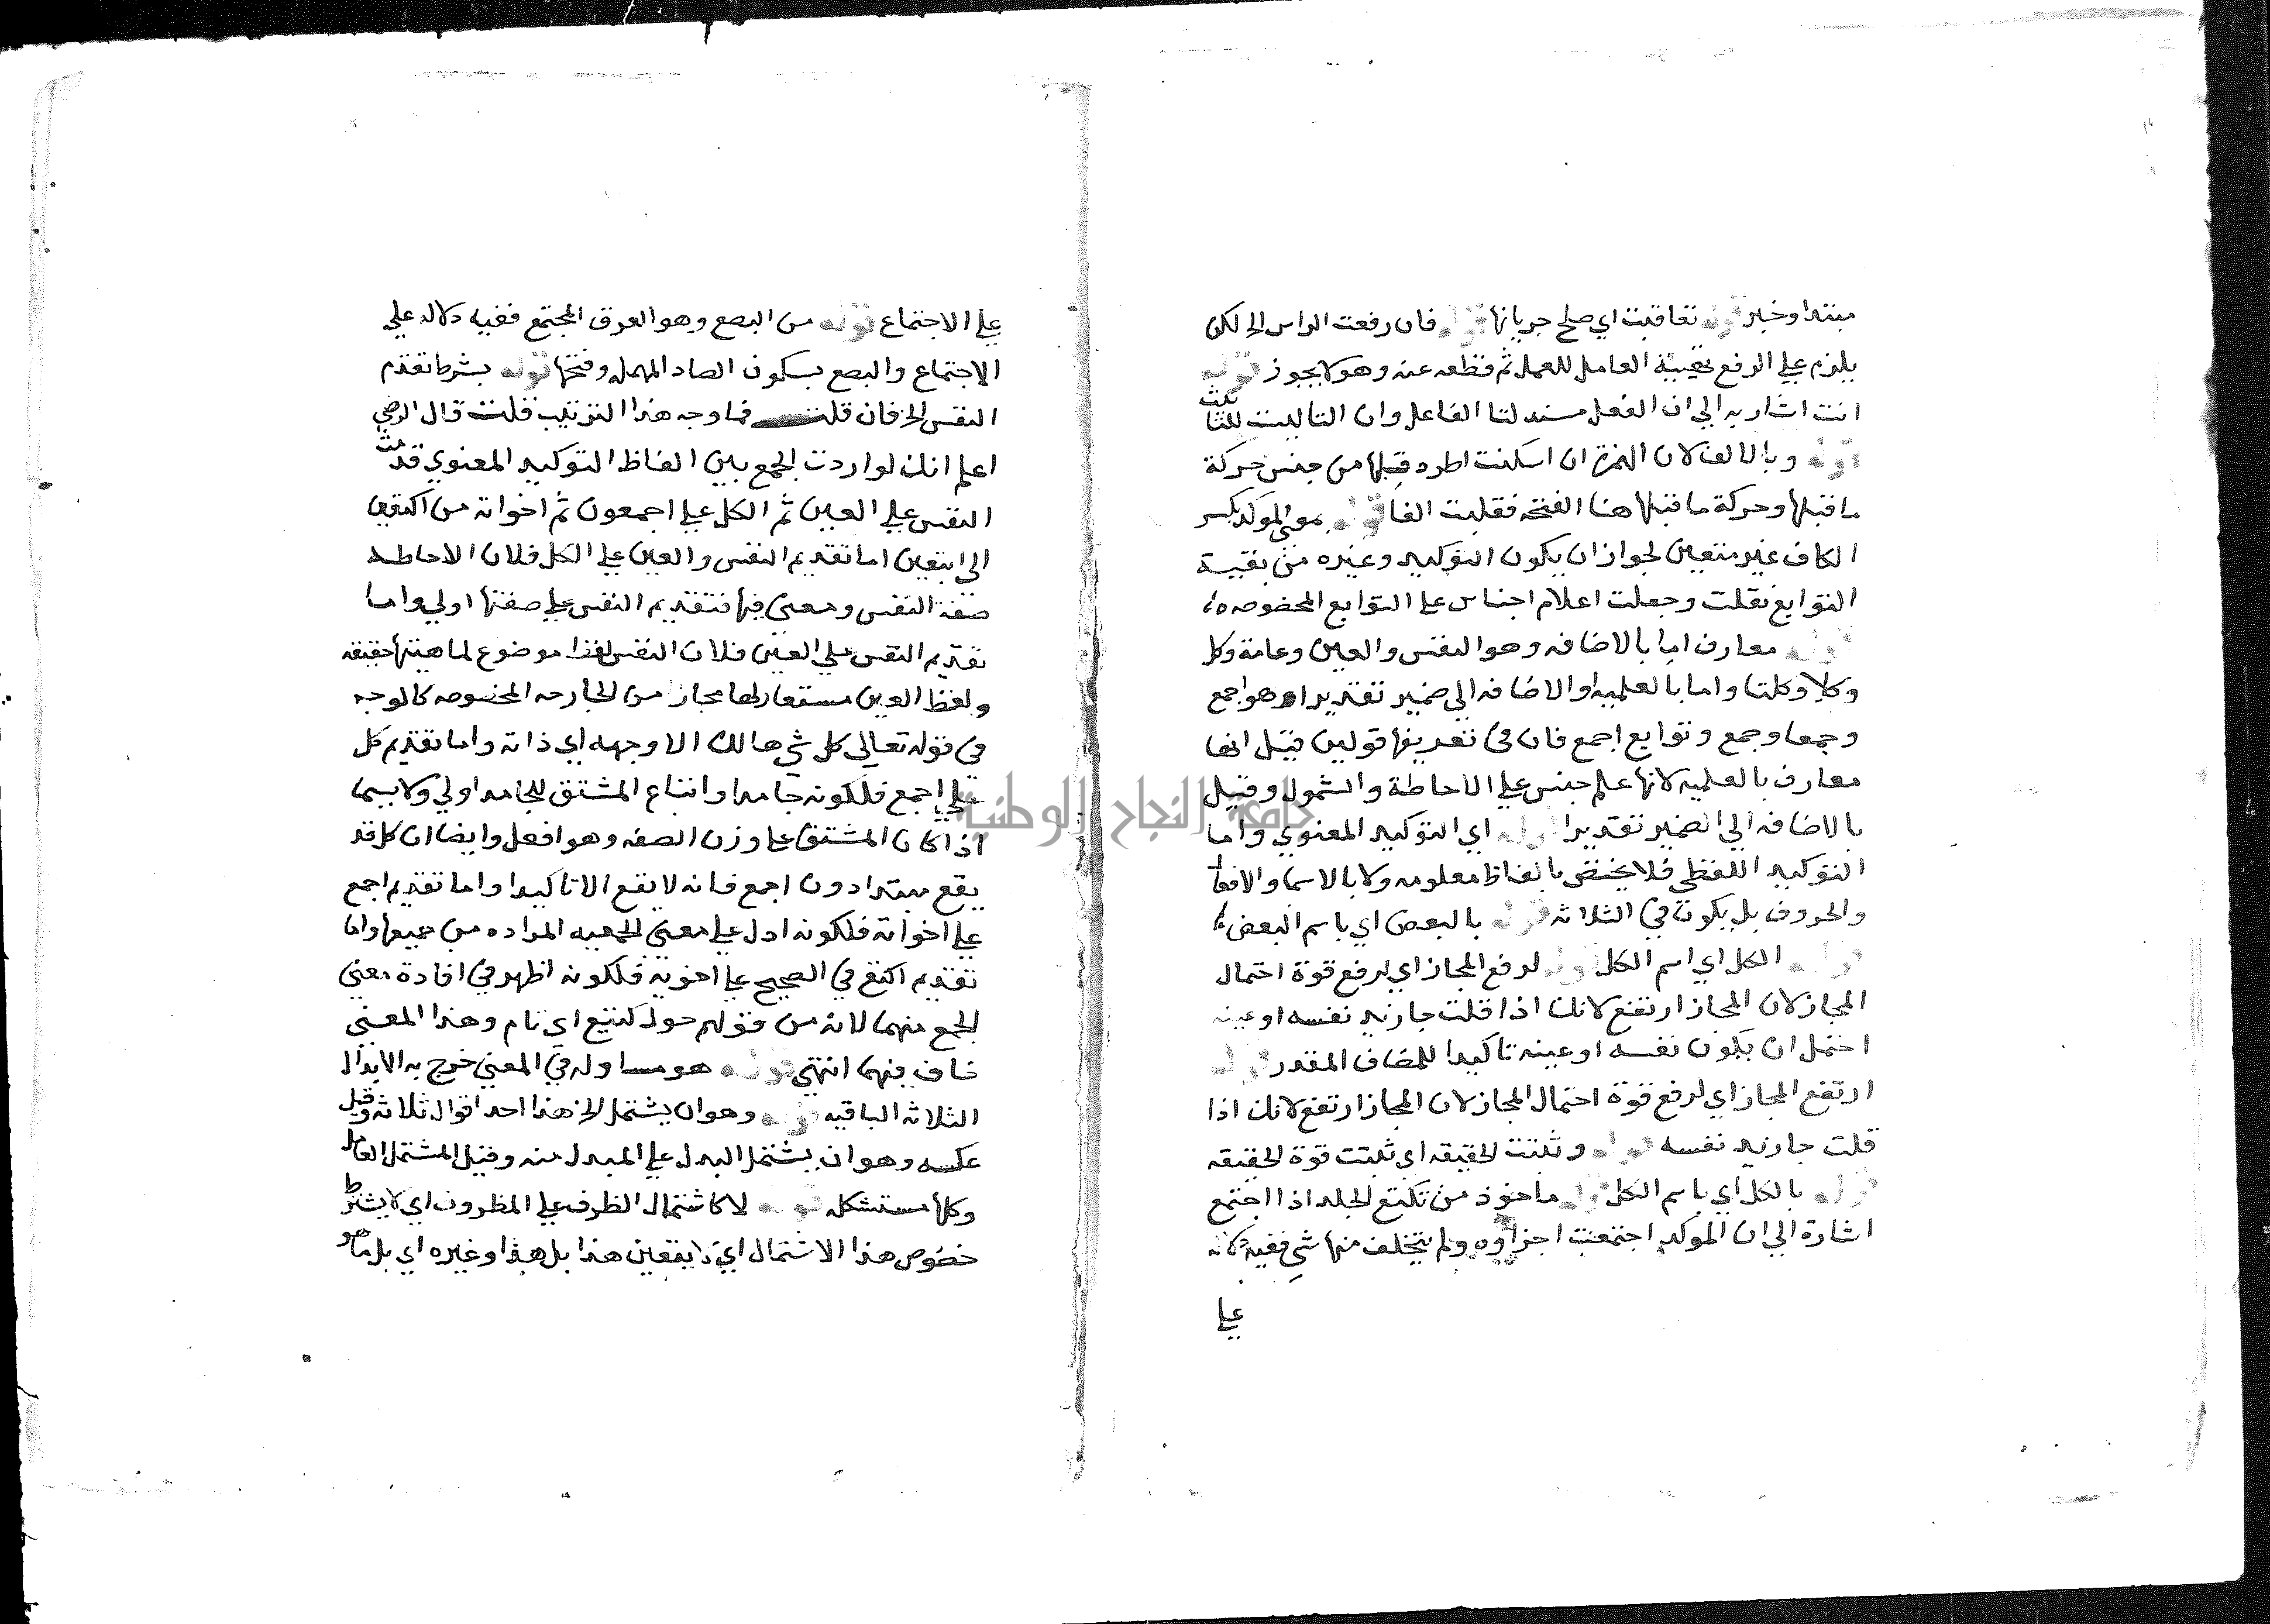 مبتدا وخبر قوله تعاقبت اي صلح جريانها قوله فان رفعت الراس الخ لكن
يلزم علي الرفع تهيئة العامل للعمل ثم قطعه عنه وهو لا يجوز قوله
انت اشار به الي ان الفعل مسند لتا الفاعل وان التا ليست للتانيث
قوله وبالالف لان الهمزة ان اسكنت اطرد قلبها من جنس حركة
ما قبلها وحركة ما قبلها هنا الفتحه فقلبت الفا قوله بمعني الموكد بكسر
الكاف غير متعين لجواز ان يكون التوكيد وغيره من بقية
التوابع نقلت وجعلت اعلام اجناس علي التوابع المخصوصه
قوله معارف اما بالاضافه وهو النفس والعين وعامة وكل
وكلا وكلتا واما بالعلميه او الاضافه الي ضمير تقديرا وهو اجمع
وجمعا وجمع وتوابع اجمع فان في تعريفها قولين قيل انها
معارف بالعلميه لانها علم جنس علي الاحاطة والشمول وقيل
بالاضافه الي الضمير تقديرا قوله اي التوكيد المعنوي واما
التوكيد اللفظي فلا يختص بالفاظ معلومه ولا بالاسما والافعال
والحروف بل يكون في الثلاثه قوله بالبعض اي باسم البعض
قوله الكل اي اسم الكل قوله لرفع المجاز اي لرفع قوة احتمال
المجاز لان المجاز ارتفع لانك اذا قلت جا زيد نفسه او عينه
احتمل ان يكون نفسه او عينه تاكيدا للمضاف المقدر قوله
ارتفع المجاز اي لرفع قوة احتمال المجاز لان المجاز ارتفع لانك اذا
قلت جا زيد نفسه قوله وثبتت الحقيقه اي ثبتت قوة الحقيقه
قوله بالكل اي باسم الكل قوله ماخوذ من تكتع الجلد اذا اجتمع
اشارة الي ان الموكد اجتمعت اجزاوه ولم يتخلف منها شي ففيه دلاله
علي
علي الاجتماع قوله من البصع وهو العرق المجتمع ففيه دلاله علي
الاجتماع والبصع بسكون الصاد المهمله وفتحها قوله بشرط تقدم
النفس الخ فان قلت فما وجه هذا الترتيب قلت قال الرضي
اعلم انك لو اردت الجمع بين الفاظ التوكيد المعنوي قدمت
النفس علي العين ثم الكل علي اجمعون ثم اخواته من اكتعين
الي ابتعين اما تقديم النفس والعين علي الكل فلان الاحاطه
صفة النفس ومعني فيها فتقديم النفس علي صفتها اولي واما
تقديم النفس علي العين فلان النفس لفظ موضوع لماهيتها حقيقه
ولفظ العين مستعار لها مجاز من الجارحه المخصوصه كالوجه
في قوله تعالي كل شي هالك الا وجهه اي ذاته واما تقديم كل
علي اجمع فلكونه جامدا واتباع المشتق للجامد اولي ولا سيما
اذا كان المشتق علي وزن الصفه وهو افعل وايضا ان كل قد
يقع مبتدا دون اجمع فانه لا يقع الا تاكيدا واما تقديم اجمع
علي اخواته فلكونه ادل علي معني الجمعيه المراده من جميعها واما
تقديم اكتع في الصحيح علي اخويه فلكونه اظهر في افادة معني
الجمع منهما لانه من قولهم حول كتيع اي تام وهذا المعني
خاف فيهما انتهي قوله هو مساو له في المعني خرج به الابدال
الثلاثه الباقيه قوله وهو ان يشتمل الخ هذا احد اقوال ثلاثه وقيل
عكسه وهو ان يشتمل البدل علي المبدل منه وقيل المشتمل العامل
وكلها مستشكله قوله لا كاشتمال الظرف علي المظروف اي لا يشترط
خصوص هذا الاشتمال اي لا يتعين هذا بل هذا وغيره اي بل ما هو
جامعة النجاح الوطنية